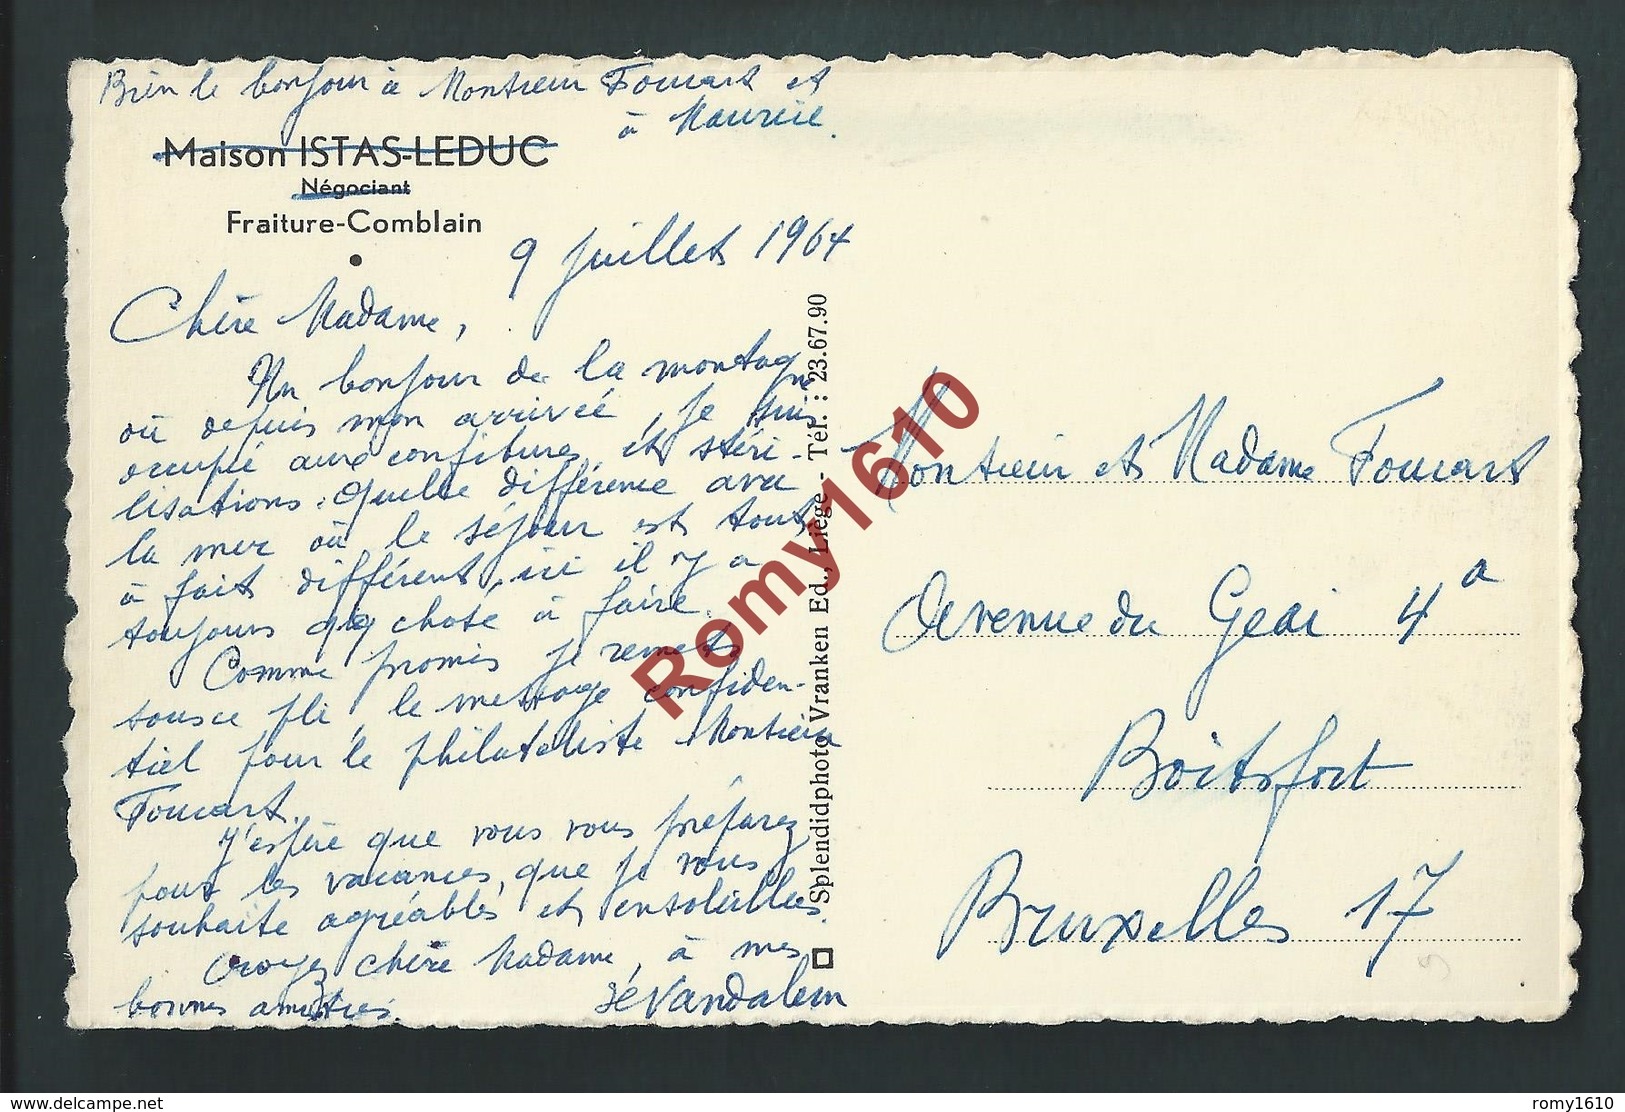 Bien le bonjour à Monsieur Foucart et
à Maurice.
Maison ISTAS-LEDUC
Négociant
Fraiture-Comblain
9 juillet 1964
Chère Madame,
Un bonjour de la montagne
où depuis mon arrivée, je suis
occupé aux confitures et stéri-
lisations. Quelle différence avec
la mer où le séjour est tout
à fait différent, ici il y a
toujours qq chose à faire.
Comme promis je remets
sous ce pli, le message confiden-
tiel pour le philateliste Monsieur
Foucart.
J'espère que vous vous préparez
pour les vacances, que je vous
souhaite agréables et ensoleillées.
Croyez chère Madame, à mes
bonnes amitiés.
Vandalem
Splendidphoto Vranken Ed., Liège. - Tél. : 23.67.90
Monsieur et Madame Foucart
Avenue du Geai 4a
Boitsfort
Bruxelles 17
Romy1610
www.delcampe.net
romy1610